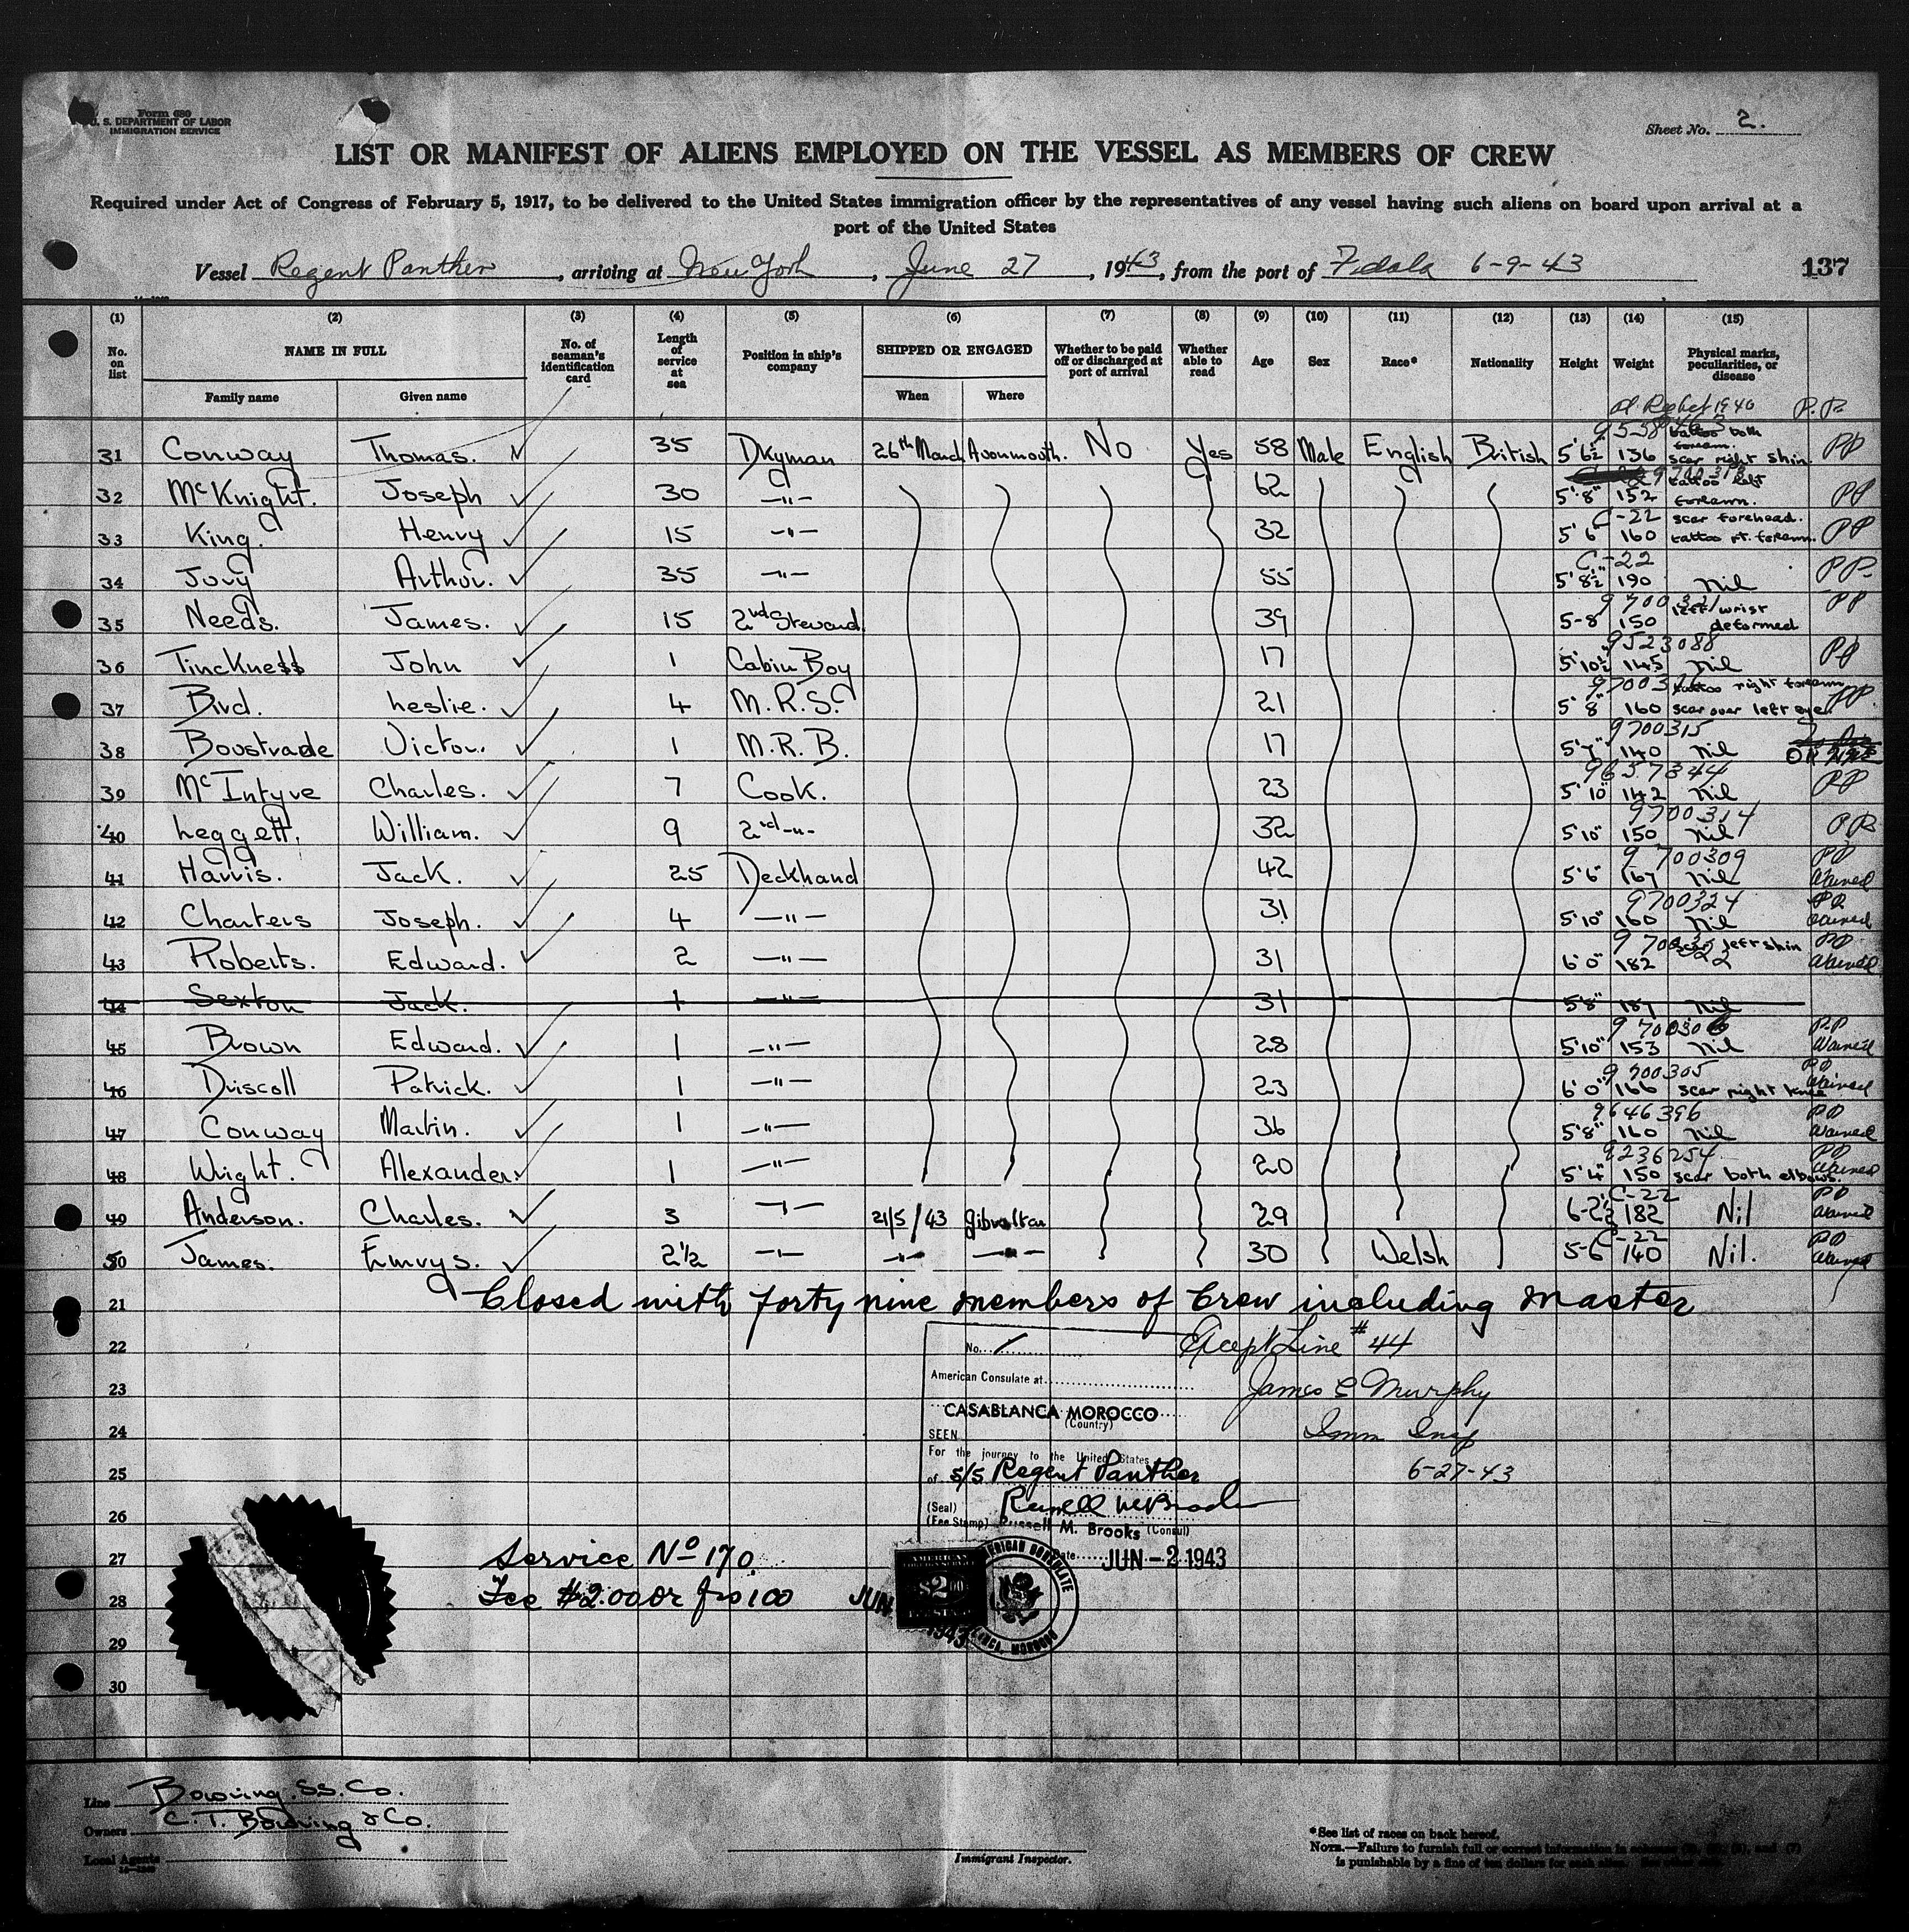 Form 680
U. S. DEPARTMENT OF LABOR
IMMIGRATION SERVICE
Sheet No. 2.
LIST OR MANIFEST OF ALIENS EMPLOYED ON THE VESSEL AS MEMBERS OF CREW
Required under Act of Congress of February 5, 1917, to be delivered to the United States immigration officer by the representatives of any vessel having such aliens on board upon arrival at a
port of the United States
Vessel Regent Panther, arriving at New York, June 27, 1943, from the port of Fedala 6-9-43
137
(1) (2) (3) (4) (5) (6) (7) (8) (9) (10) (11) (12) (13) (14) (15)
No. on list NAME IN FULL No. of seaman's identification card Length of service at sea Position in ship's company SHIPPED OR ENGAGED Whether to be paid off or discharged at port of arrival Whether able to read Age Sex Race* Nationality Height Weight Physical marks, peculiarities, or disease
Family name Given name When Where
1940 P.P.
31 Conway Thomas. 35 Dkyman 26th March Avonmouth. No Yes 58 Male English British 5'6½ 136 tattoo both forearm. scar right shin. PP
32 McKnight. Joseph 30 -"- 62 5'-8" 152 tattoo left forearm. PP
33 King. Henry 15 -"- 32 C-22 5'6" 160 scar forehead. tattoo rt. forearm. PP
34 Jory Arthur. 35 -"- 55 C-22 5'8½" 190 Nil PP
35 Needs. James. 15 2nd Steward. 39 5-8 150 left wrist deformed PP
36 Tinckness John 1 Cabin Boy 17 9523088 5'10½" 145 Nil PP
37 Bird. Leslie. 4 M.R.S. 21 5'8" 160 tattoo right forearm scar over left eye. PP
38 Boustrade Victor. 1 M.R.B. 17 9700315 5'7" 140 Nil
39 McIntyre Charles. 7 Cook. 23 9657844 5'10" 142 Nil PP
40 Leggett. William. 9 2nd -"- 32 9700314 5'10" 150 Nil PP
41 Harris. Jack. 25 Deckhand 42 9700309 5'6" 167 Nil PP Waived
42 Charters Joseph. 4 -"- 31 9700324 5'10" 160 Nil PP Waived
43 Roberts. Edward. 2 -"- 31 6'0" 182 scar left shin PP Waived
44 Sexton Jack. 1 -"- 31 5'8" 187 Nil
45 Brown Edward. 1 -"- 28 9700306 5'10" 153 Nil PP Waived
46 Driscoll Patrick. 1 -"- 23 9700305 6'0" 166 scar right knee PP Waived
47 Conway Martin. 1 -"- 36 9646396 5'8" 160 Nil PP Waived
48 Wright. Alexander. 1 -"- 20 9236254 5'4" 150 scar both elbows. PP Waived
49 Anderson. Charles. 3 -"- 21/5/43 Gibraltar 29 C-22 6-2½ 182 Nil PP Waived
50 James. Emrys. 2½ -"- -"- -"- 30 Welsh C-22 5-6 140 Nil. PP Waived
21 Closed with forty nine members of Crew including Master
22 No. 1 Except Line #44
23 American Consulate at James E Murphy
CASABLANCA MOROCCO
(Country)
24 SEEN Imm Insp
For the journey to the United States
25 of S/S Regent Panther 6-27-43
(Seal)
26 (Fee Stamp) Russell M. Brooks (Consul)
27 Service No 170. Date JUN - 2 1943
28 Fee $2.00 or frs 100 JUN 1943
$2.00
AMERICAN CONSULATE
CASABLANCA, MOROCCO
29
30
Line Bowring. SS. Co.
Owners C. T. Bowring & Co.
Local Agents
Immigrant Inspector.
*See list of races on back hereof.
NOTE.—Failure to furnish full or correct information in columns
is punishable by a fine of ten dollars for each alien.